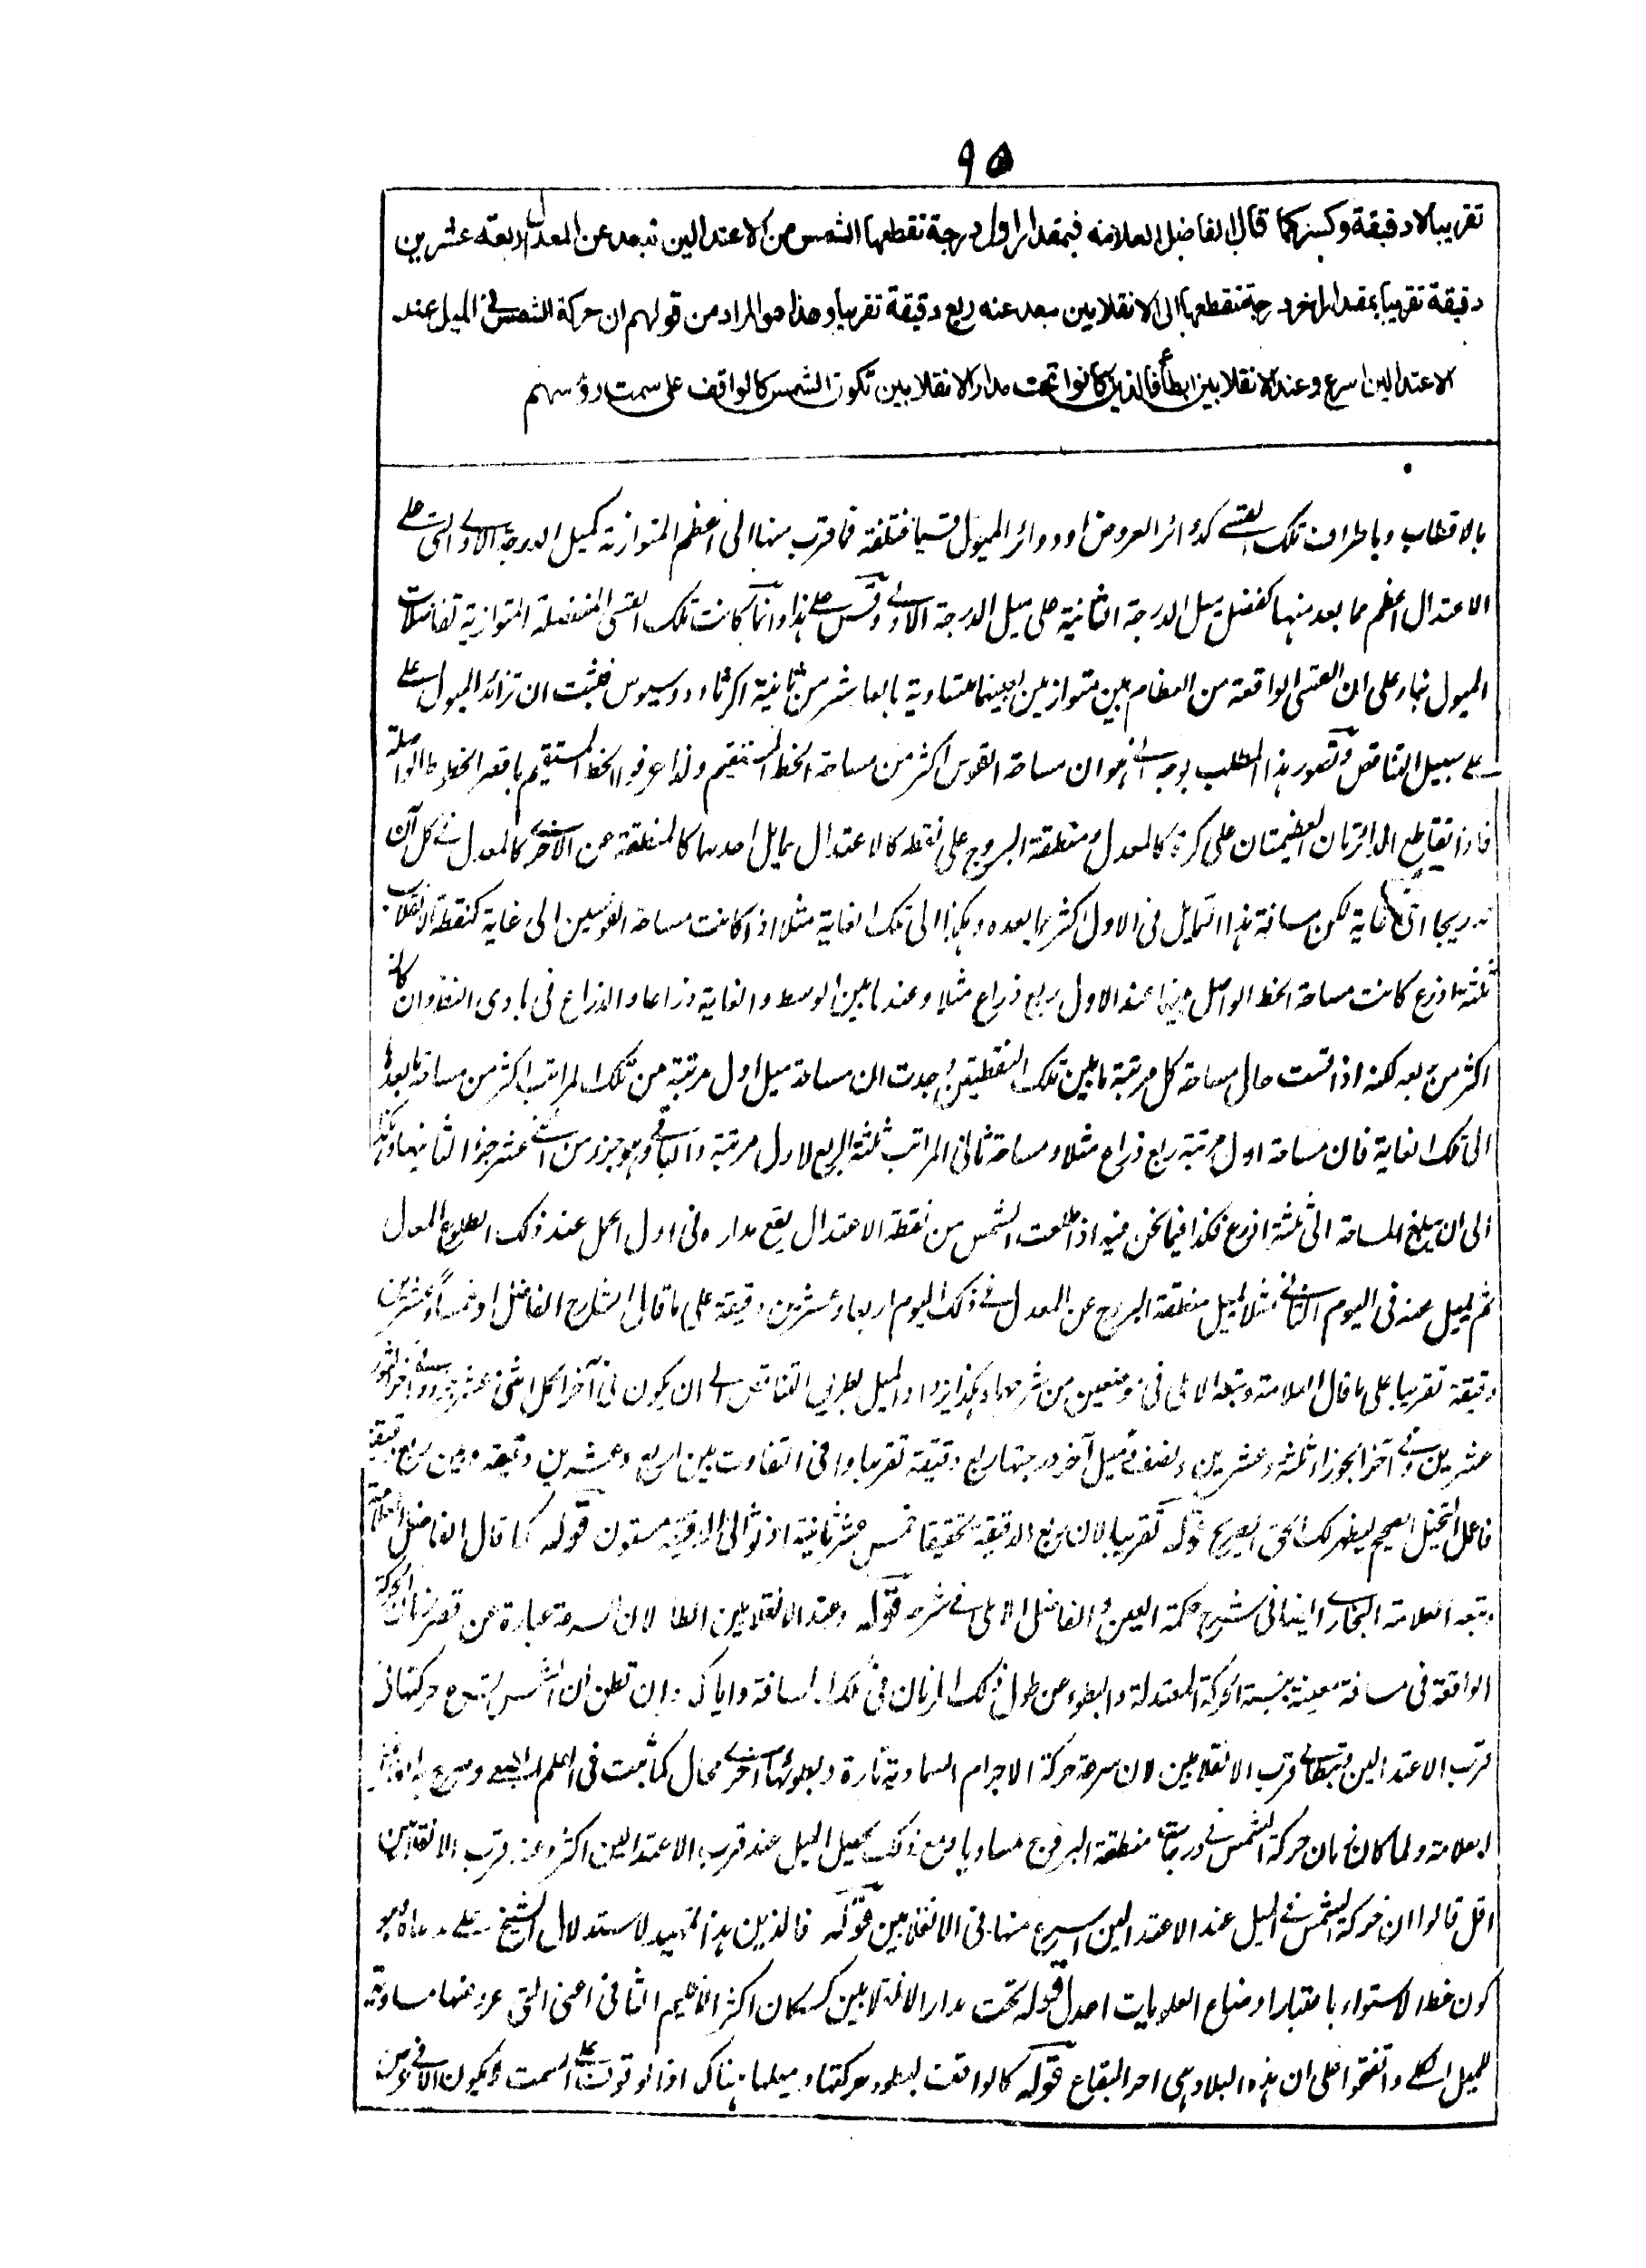 ٩٥
تقريبا لا دقيقة وكسر كما قال الفاضل العلامة فبمقدار اول درجة تقطعها الشمس من الاعتدالين تبعد عن المعدل اربعة عشرين
دقيقة تقريبا بمقدار اخر درجة تقطعها الى الانقلابين يبعد عنه ربع دقيقة تقريبا وهذا هو المراد من قولهم ان حركة الشمس في الميل عند
الاعتدالين اسرع وعند الانقلابين ابطأ فالذين كانوا تحت مدار الانقلابين تكون الشمس كالواقف على سمت رؤسهم
بالاقطاب وباطراف تلك القسي كدوائر العروض او دوائر الميول قسيا مختلفة فما قرب منها الى اعظم المتوازية كميل الدرجة الاولى التي على
الاعتدال اعظم مما بعد منها كفضل ميل الدرجة الثانية على ميل الدرجة الاولى وقس على هذا وانما كانت تلك القسي المنفصلة المتوازية تفاضلات
الميول بناء على ان القسي الواقعة من العظام بين متوازيين بعينهما متساوية بالعاشر من ثانية اكر ثاودوسيوس فثبت ان تزائد الميول على
على سبيل التناقص وتصور هذا المطلب بوجه اخر هو ان مساحة القوس اكثر من مساحة الخط المستقيم ولذا عرفوا الخط المستقيم باقصر الخطوط الواصلة
فاذا تقاطع الدائرتان العظيمتان على كرة كالمعدل ومنطقة البروج على نقطة كالاعتدال يمايل احدهما كالمنطقة عن الاخرى كالمعدل في كل آن
تدريجا الى غاية لكن مسافة هذا التمايل في الاول اكثر مما بعده وهكذا الى تلك الغاية مثلا اذا كانت مساحة القوسين الى غاية كنقطة الانقلاب
ثلثة اذرع كانت مساحة الخط الواصل بينهما عند الاول ربع ذراع مثلا وعند ما بين الوسط والغاية ذراعا والذراع في بادى النظر وان كان
اكثر من ربعه لكنه اذا قست حال مساحة كل مرتبة ما بين تلك النقطتين وجدت ان مساحة ميل اول مرتبة من تلك المراتب اكثر من مسافة ما بعدها
الى تلك الغاية فان مساحة اول مرتبة ربع ذراع مثلا ومساحة ثاني المراتب ثلثة الربع لاول مرتبة والباقي وهو جزء من اثنى عشر جزء الثانيها وهكذا
الى ان تبلغ المساحة الى ثلثة اذرع فكذا فيما نحن فيه اذا طلعت الشمس من نقطة الاعتدال يقع مداره في اول الحمل عند ذلك الطلوع المعدل
ثم يميل عنه في اليوم الثاني مثلا لميل منطقة البروج عن المعدل في ذلك اليوم اربعا وعشرين دقيقة على ما قال الشارح الفاضل او خمسا وعشرين
دقيقة تقريبا على ما قال العلامة وتبعه الاملى في موضعين من شرحهما وهكذا يزداد الميل بطريق التناقص الى ان يكون في آخر الحمل اثنى عشر وفى آخر الثور
عشرين وفى آخر الجوزاء ثلثة وعشرين ونصف فميل آخر درجتها ربع دقيقة تقريبا وافى التفاوت بين اربع وعشرين دقيقة وبين ربع دقيقة
فاعمل التخيل الصحيح ليظهر لك الحق الصريح قوله تقريبا لان ربع الدقيقة تحقيقا خمس عشر ثانية اذ ثواني الدقيقة ستون قوله كما قال الفاضل العلامة
وتبعه العلامة البخاري ايضا في شرح حكمة العين والفاضل الاملى في شرحه قوله وعند الانقلابين ابطأ لان السرعة عبارة عن قصر زمان الحركة
الواقعة في مسافة معينة بنسبة الحركة المعتدلة والبطوء عن طول ذلك الزمان في تلك المسافة واياك وان تظن ان الشمس يتسرع حركتها في
قرب الاعتدالين وتبطأ في قرب الانقلابين لان سرعة حركة الاجرام السماوية تارة وبطوئها اخرى محال كما ثبت في العلم الطبيعى وصرح به
العلامة ولما كان زمان حركة الشمس في درجات منطقة البروج مساويا ومع ذلك يحصل الميل عند قرب الاعتدالين اكثر وعند قرب الانقلابين
اقل قالوا ان حركة الشمس في الميل عند الاعتدالين اسرع منها في الانقلابين قوله فالذين هذا تمهيد لاستدلال الشيخ على مدعاه وهو
كون خط الاستواء باعتبار اوضاع العلويات اعدل قوله تحت مدار الانقلابين كسكان اكثر الاقليم الثاني اعنى التي عروضها مساوية
للميل الكلى واتفقوا على ان هذه البلاد هى احر البقاع قوله كالواقف لبطوء حركتها وميلها هناك اذ الوقوف على السمت لا يكون الا في عرض